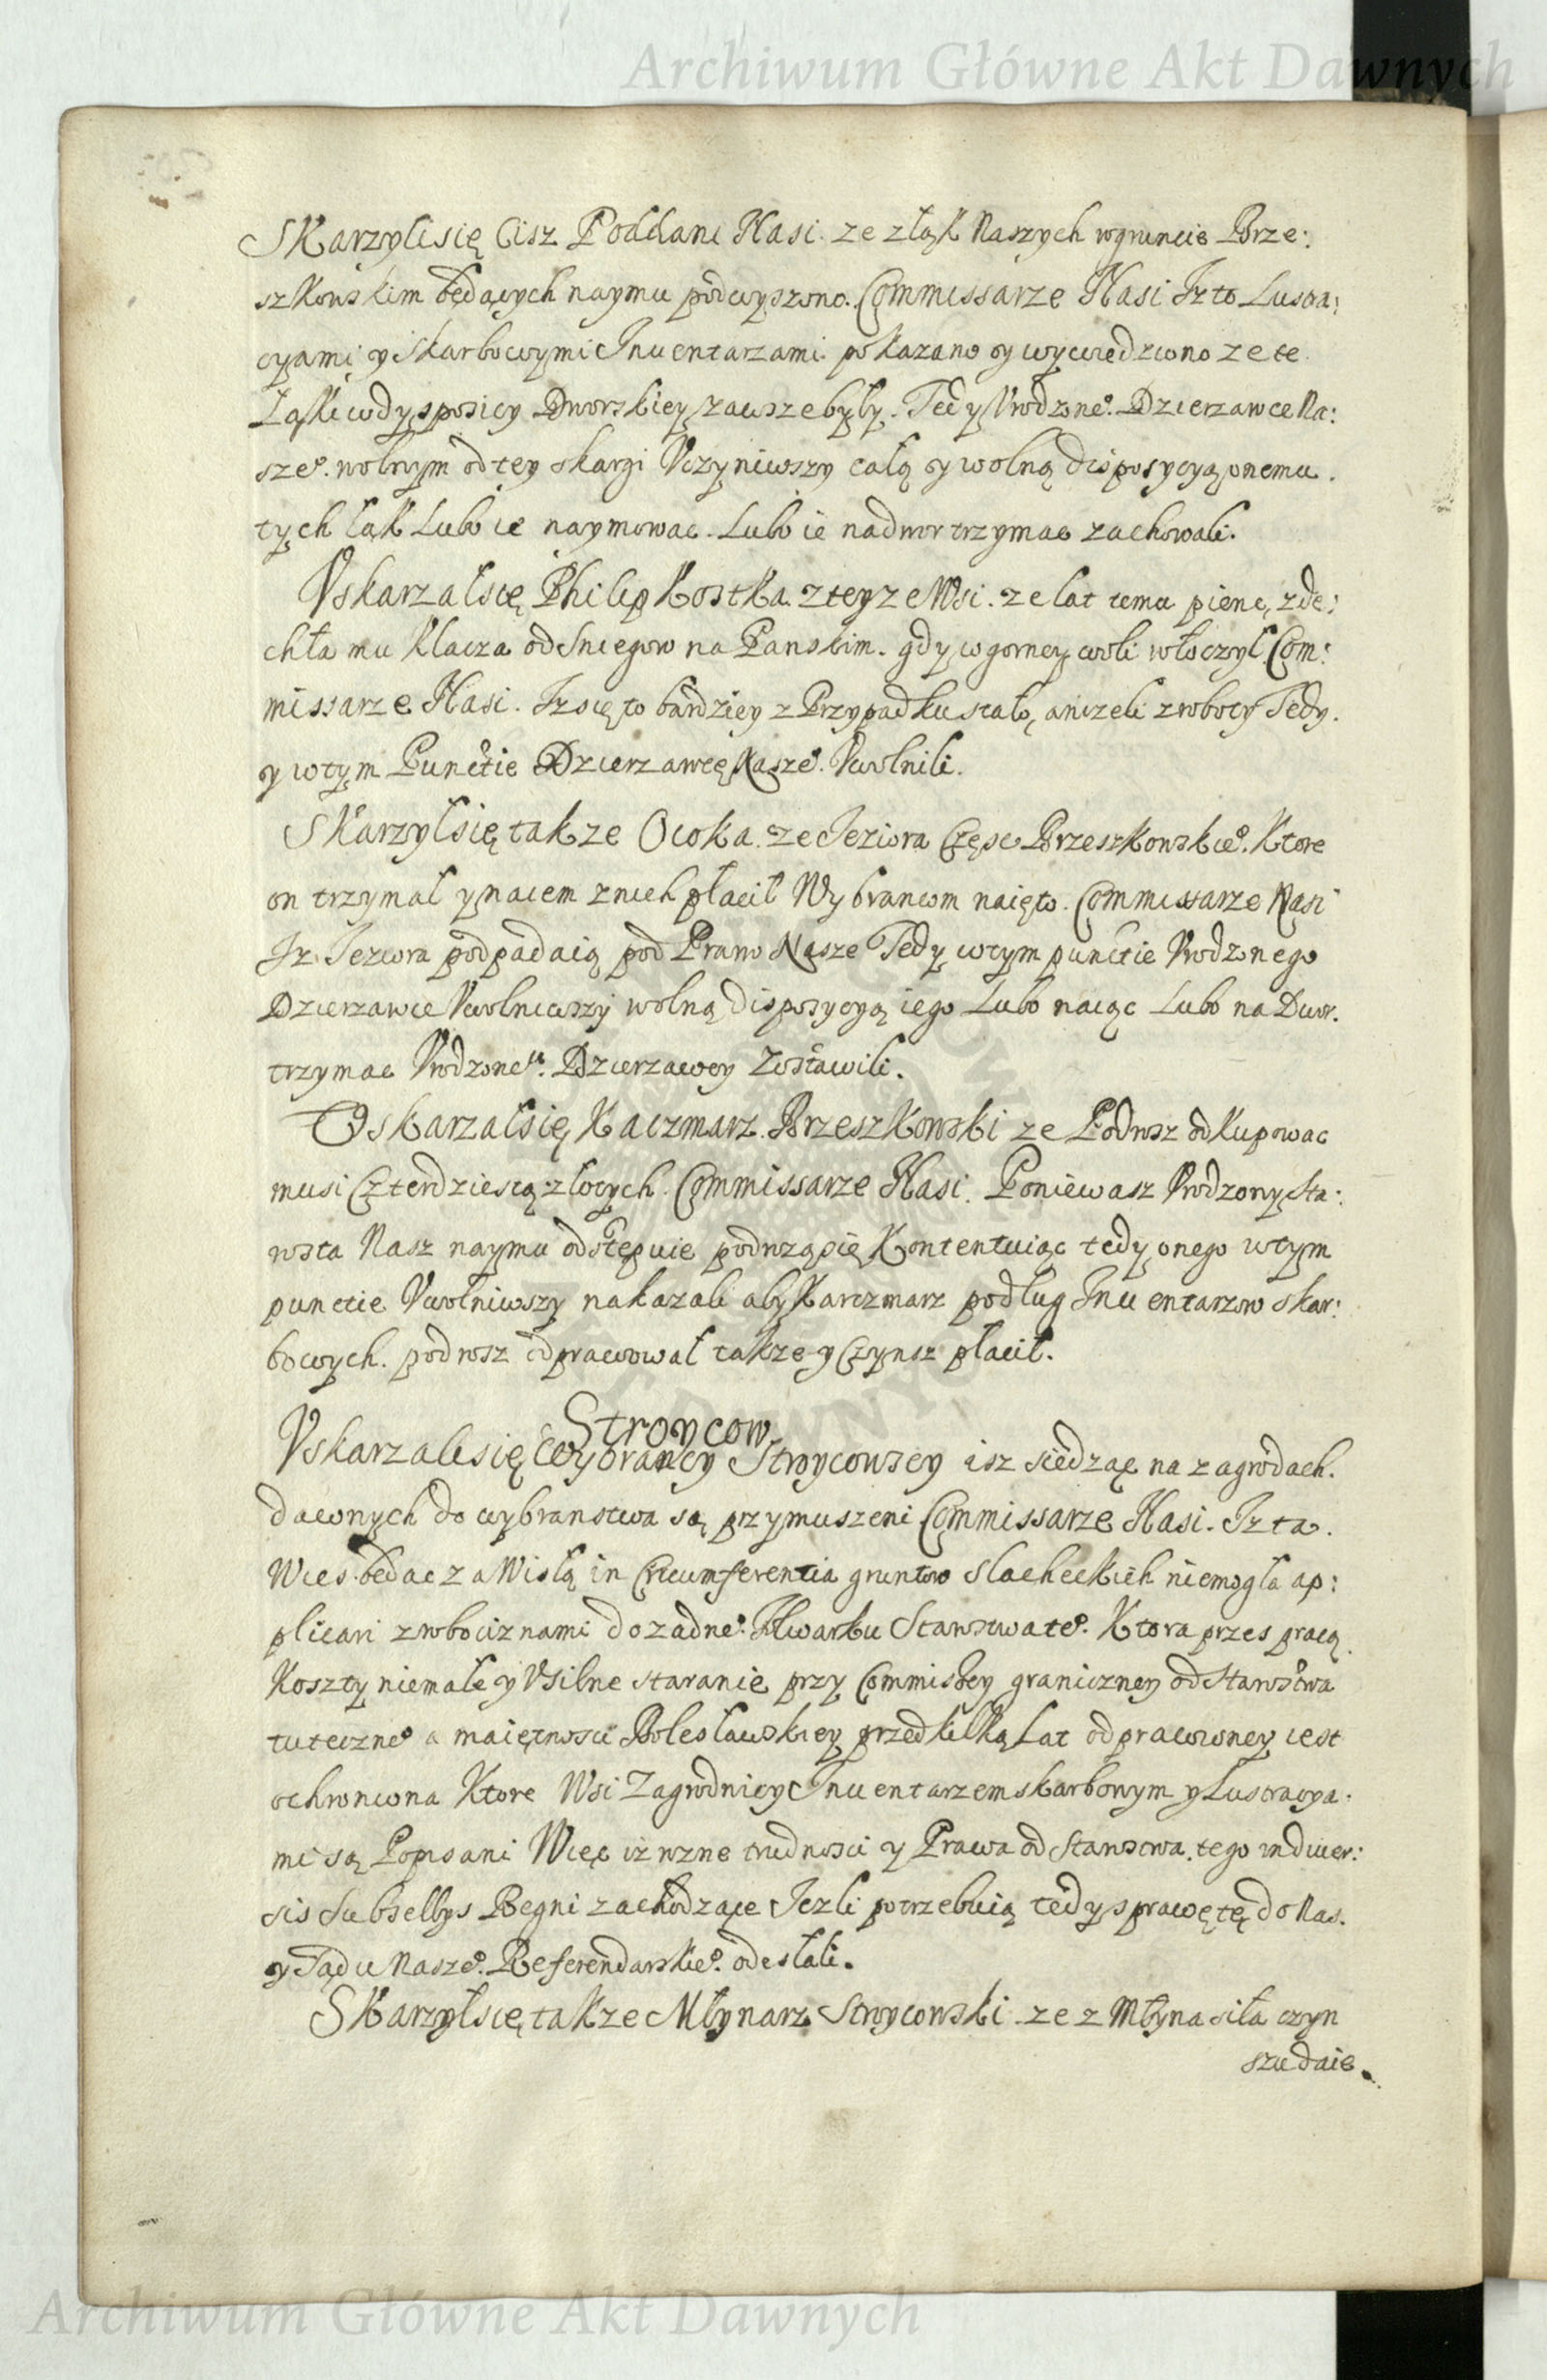 Archiwum Główne Akt Dawnych
Skarzyli się Cisz Poddani Nasi. ze z łąk Naszych w gruncie Brze:
szkowskim będących naymu podwyszono. Commissarze Nasi Iz to Lustra:
cyami y Skarbowymi Inuentarzami pokazano y wywiedziono ze te
Łąki w dysposicy Dworskiey zawsze były. Tedy Vrodzone° Dzierzawce Na:
sze° wolnym od tey skargi Vczyniwszy całą y wolną disposycyą onemu.
tych łąk Lubo ie naymowac. Lubo ie na dwor trzymac zachowali.
Vskarzał się Philip Kostka z teyze Wsi. ze lat temu pienc, zde:
chła mu klacza od Sniegow na Panskim. gdy w gorney woli włoczył. Com:
missarze Nasi. Iz się to bardziey z Przypadku stało, anizeli z roboty Tedy.
y w tym Punctie Dzierzawcę Nasze° Vwolnili.
Skarzył się takze Ocoka. ze Ieziora Częsc Brzeszkowskie°. Ktore
on trzymał y naiem z nich płacił Wybrancom naięto. Commissarze Nasi
Iz Ieziora podpadaią pod Prawo Nasze Tedy w tym punctie Vrodzonego
Dzierzawce Vwolniwszy wolną disposycyą iego Lubo naiąc Lubo na Dwor.
trzymac Vrodzone{mu} Dzierzawcy Zostawili.
Vskarzał się Kaczmarz Brzeszkowski ze Podwosz odkupowac
musi Czterdziestą złotych. Commissarze Nasi. Poniewasz Vrodzony Sta:
rosta Nasz naymu odstępuie podwozą się Kontentuiąc tedy onego w tym
punctie Vwolniwszy nakazali aby Karczmarz podług Inuentarzow skar:
bowych. podwosz odpracowował takze y Czynsz płacił.
Stroycow
Vskarzali się Wybrancy Stroycowscy isz siedząc na zagrodach.
dawnych do wybranstwa są przymuszeni Commissarze Nasi. Iz ta.
Wies. bedac za Wisłą in Circumferentia gruntow Slacheckich niemogła ap:
plicari z robociznami do zadne° Folwarku Starostwa te°. Ktora przes pracą
Koszty niemałe y Vsilne staranie przy Commissiey graniczney od Starostwa
tuteczne° a maiętnosci Bolesławskiey przed kilką Lat odprawioney iest
ochroniona Ktore Wsi Zagrodnicy Inuentarzem skarbowym y Lustracya.
mi są Popisani Więc iz rozne trudnosci y Prawa od Starostwa tego in diuer:
sis Subsellys Regni zachodzące Iezli potrzebuią tedy sprawę tę do Nas.
y Sądu Nasze° Referendarskie° odesłali.
Skarzył się takze Młynarz Stroycowski ze z Młyna siła czyn
szu daie.
Archiwum Główne Akt Dawnych